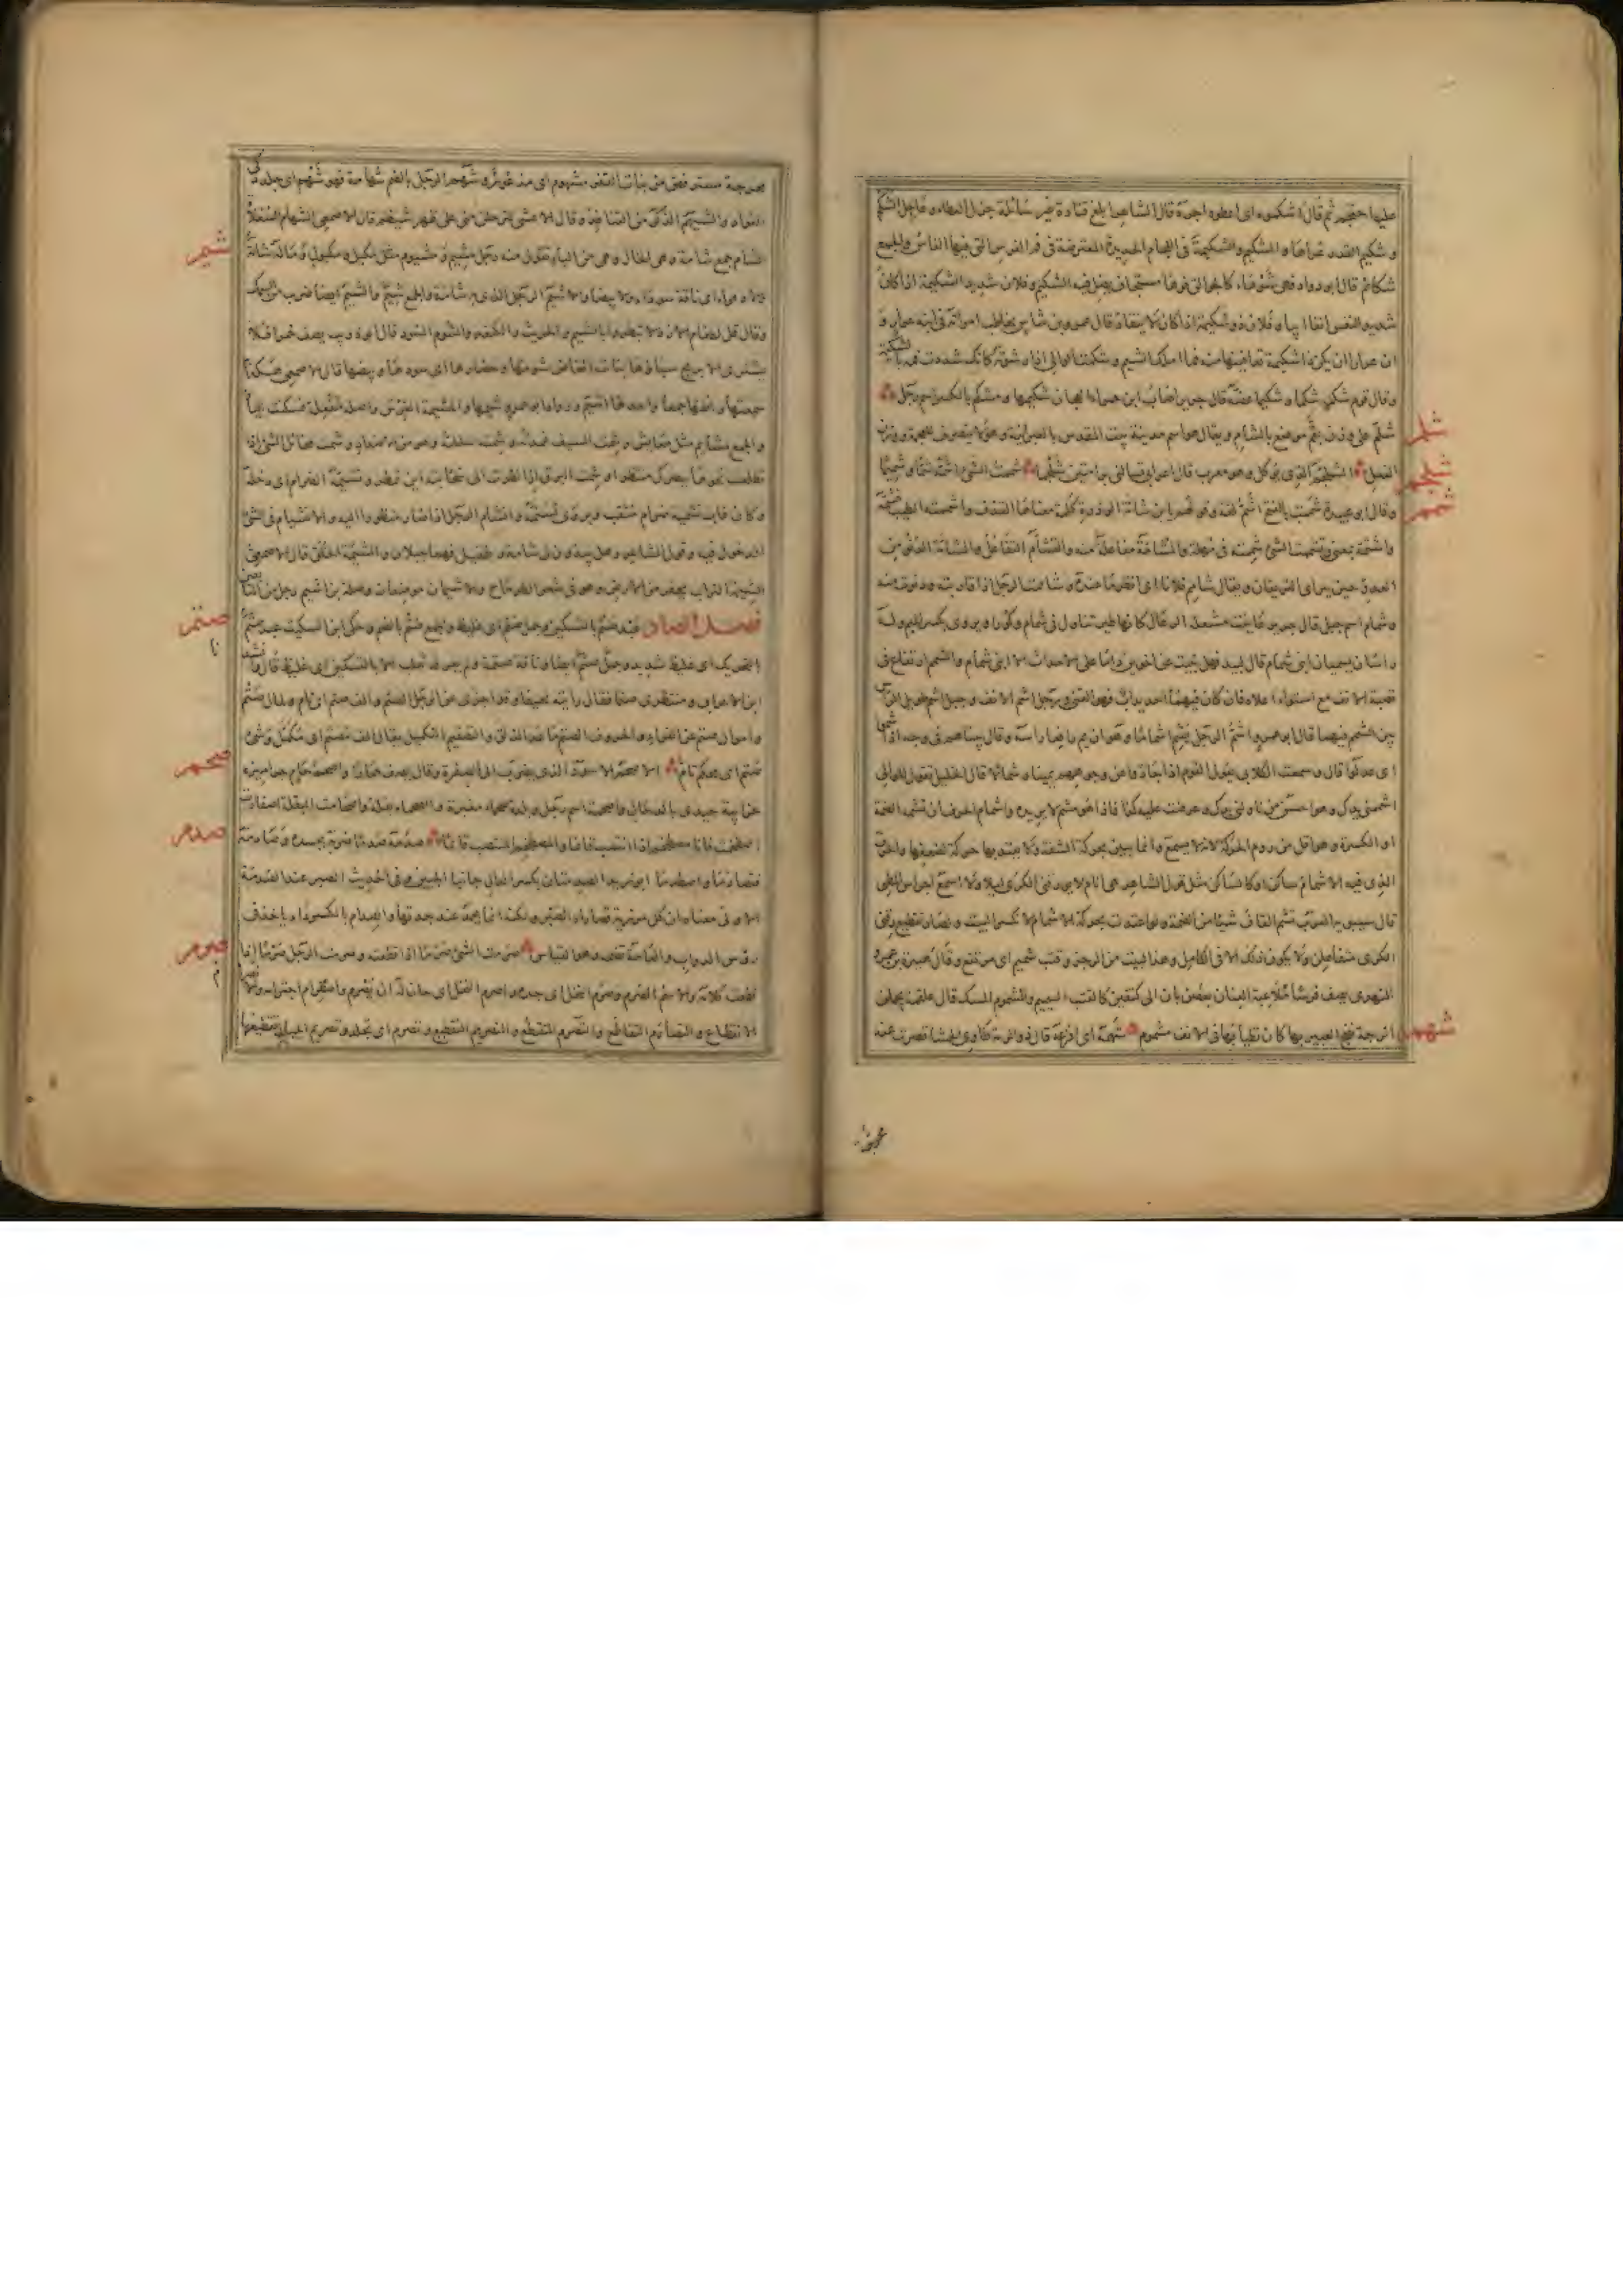 عليها حضهم ثم قال اشكموه اى اعطوه اجره قال الشاعر ابلغ قتادة غير سائلة جزل العطاء وعاجل الشكم
وشكيم القدر عراها والشكيم والشكيمة فى اللجام الحديدة المعترضة فى فم الفرس التى فيها الفاس والجمع
شكائم قال ابو دواد فهى شوهاء كالجوالق فوها مستجاف يضل فيه الشكيم وفلان شديد الشكيمة اذا كان
شديد النفس انفا ابيا وفلان ذو شكيمة اذا كان لا ينقاد قال عمرو بن شاس يخاطب امراته فى ابنه عرار و
ان عرارا ان يكن ذا شكيمة تعافينها منه فما املك الشيم وشكمت الوالى اذا رشوته كانك سددت فمه بالشكيمة
وقال قوم شكمه شكما وشكيما عضه قال جرير اصاب ابن حمراء العجان شكيمها ومشكم بالكسر اسم رجل
شلم
شلم على وزن بقم موضع بالشام ويقال هو اسم مدينة بيت المقدس بالعبرانية وهو لا ينصرف للعجمة ووزن
شلجم
الفعل الشلجم الذى يوكل وهو معرب قال تسالنى برامتين شلجما شممت الشئ اشمه شما وشميما
شمم
وقال ابو عبيدة شممت بالفتح اشم لغة وقولهم يا ابن شامة الوذرة كلمة معناها القذف واشممته الطيب فشمه
واشتمه بمعنى وتشممت الشئ شممته فى مهلة والمشامة مفاعلة منه والتشام التفاعل والمشامة الدنو من
العدو حين يتراى الفريقان ويقال شامم فلانا اى انظر ما عنده وشاممت الرجل اذا قاربته ودنوت منه
وشمام اسم جبل قال جرير عاينت مشعلة الرعال كانها طير تغاول فى شمام وكورا ويروى بكسر الميم وله
راسان يسميان ابنى شمام قال لبيد فهل نبيت عن اخوين داما على الاحداث الا ابنى شمام والشمم ارتفاع فى
قصبة الانف مع استواء اعلاه فان كان فيها احديداب فهو القنى ورجل اشم الانف وجبل اشم طويل الراس
بين الشمم فيهما قال ابو عمرو اشم الرجل يشم اشماما وهو ان يمر رافعا راسه وقال بيناهم فى وجه اذ اشموا
اى عدلوا قال وسمعت الكلابى يقول اشم القوم اذا جاروا عن وجوههم يمينا وشمالا قال الخليل تقول للوالى
اشممنى يدك وهو احسن من ناولنى يدك وعرضت عليه كذا فاذا هو مشم لا يريده واشمام الحرف ان تشمه الضمة
او الكسرة وهو اقل من روم الحركة لانه لا يسمع وانما يتبين بحركة الشفة ولا يعتد بها حركة لضعفها والحرف
الذى فيه الاشمام ساكن او كالساكن مثل قول الشاعر متى انام لا يورقنى الكرى ليلا ولا اسمع اجراس المطى
قال سيبويه العرب تشم القاف شيئا من الضمة ولو اعتددت بحركة الاشمام لانكسر البيت وصار تقطيع رقنى
الكرى متفاعلن ولا يكون ذلك الا فى الكامل وهذا البيت من الرجز وقتب شميم اى مرتفع وقال
يصف فرسا ملاعبة العنان بغصن بان الى كتفين كالقتب الشميم والمشموم المسك قال علقمة يحملن
شهم
اترجة نضخ العبير بها كان تطيابها فى الانف مشموم شهمه اى افزعه قال ذو الرمة طاوى الحشا قصرت عنه
محرجة مستوفض من بنات القفر مشهوم اى مذعور وشهم الرجل بالضم شهامة فهو شهم اى جلد ذكى
الفواد والشيهم الذكر من القنافذ وقال الاعشى لترتحلن منى على ظهر شيهم قال الاصمعى الشهام السعلاة
شيم
الشام جمع شامة وهى الخال وهى من الياء تقول منه رجل مشيم ومشيوم مثل مكيل ومكيول وماله شامة
ولا زهراء اى ناقة سوداء ولا بيضاء والاشيم الرجل الذى به شامة والجمع شيم والشيم ايضا ضرب من السمك
وقال قل لطغام الازد لا تبطروا بالشيم والجريث والكنعد والشوم السود قال ابو ذويب يصف خمرا فلا
تشترى الا بربح سباؤها بنات المخاض شومها وحضارها اى سودها وبيضها قال الاصمعى هكذا
سمعتها واظنها جمعا واحدها اشيم ورواه ابو عمرو شيمها والمشيمة الغرس واصله مفعلة فسكنت الياء
والجمع مشايم مثل معايش وشمت السيف غمدته وشمته سللته وهو من الاضداد وشمت مخائل الشئ اذا
تطلعت نحوها ببصرك منتظرا له وشمت البرق اذا نظرت الى سحابته اين تمطر وتشيمه الضرام اى دخله
وكان فانشام الرجل اذا صار منظورا اليه والانشيام فى الشئ
الدخول فيه وقول الشاعر وهل يبدون لى شامة وطفيل فهما جبلان والشيمة الخلق قال الاصمعى
الشيمة التراب يحفر من الارض وهو فى شعر الطرماح والاشيمان موضعان وصلة بن اشيم رجل من التابعين
صتم
فصل الصاد عبد صتم بالتسكين وجمل صتم اى غليظ والجمع صتم بالضم وحكى ابن السكيت عبد صتم
بالتحريك اى غليظ شديد وجمل صتم ايضا وناقة صتمة ولم يعرفه ثعلب الا بالتسكين اى غليظ قال وانشدنا
ابن الاعرابى ومنتظرى صتما فقال رايته نحيفا وقد اجزى عن الرجل الصتم والف صتم اى تام ومال صتم
واموال صتم عن الفراء والحروف الصتم ما عدا الذلق والتصتيم التكميل يقال الف مصتم اى مكمل وشئ
صحم
صتم اى محكم تام الاصحم الاسود الذى يضرب الى الصفرة وقال يصف حمارا واصحم حام جراميزه
حزابية حيدى بالدحال واصحمة اسم رجل وبلدة صحماء مغبرة والصحماء بقلة واصحامت البقلة اصفارت
صدم
اصطخمت فانا مصطخم اذا انتصبت قائما والمصطخم المنتصب قائما صدمه صدما ضربه بجسده وصادمه
فتصادما واصطدما ابو زيد الصدمتان بكسر الدال جانبا الجبين وفى الحديث الصبر عند الصدمة
الاولى معناه ان كل مرزية قصاراه الصبر ولكنه انما يحمد عند حدتها والصدام بالكسر داء ياخذ فى
صرم
رؤس الدواب والعامة تضمه وهو القياس صرمت الشئ صرما اذا قطعته وصرمت الرجل صرما اذا
قطعت كلامه والاسم الصرم وصرم النخل اى جده واصرم النخل اى حان له ان يصرم واصطرام اجترامه
الانقطاع والتصارم التقاطع والتصرم التقطع والتصريم التقطيع وتصرم اى تجلد وتصريم الحبال تقطيعها
محرجة